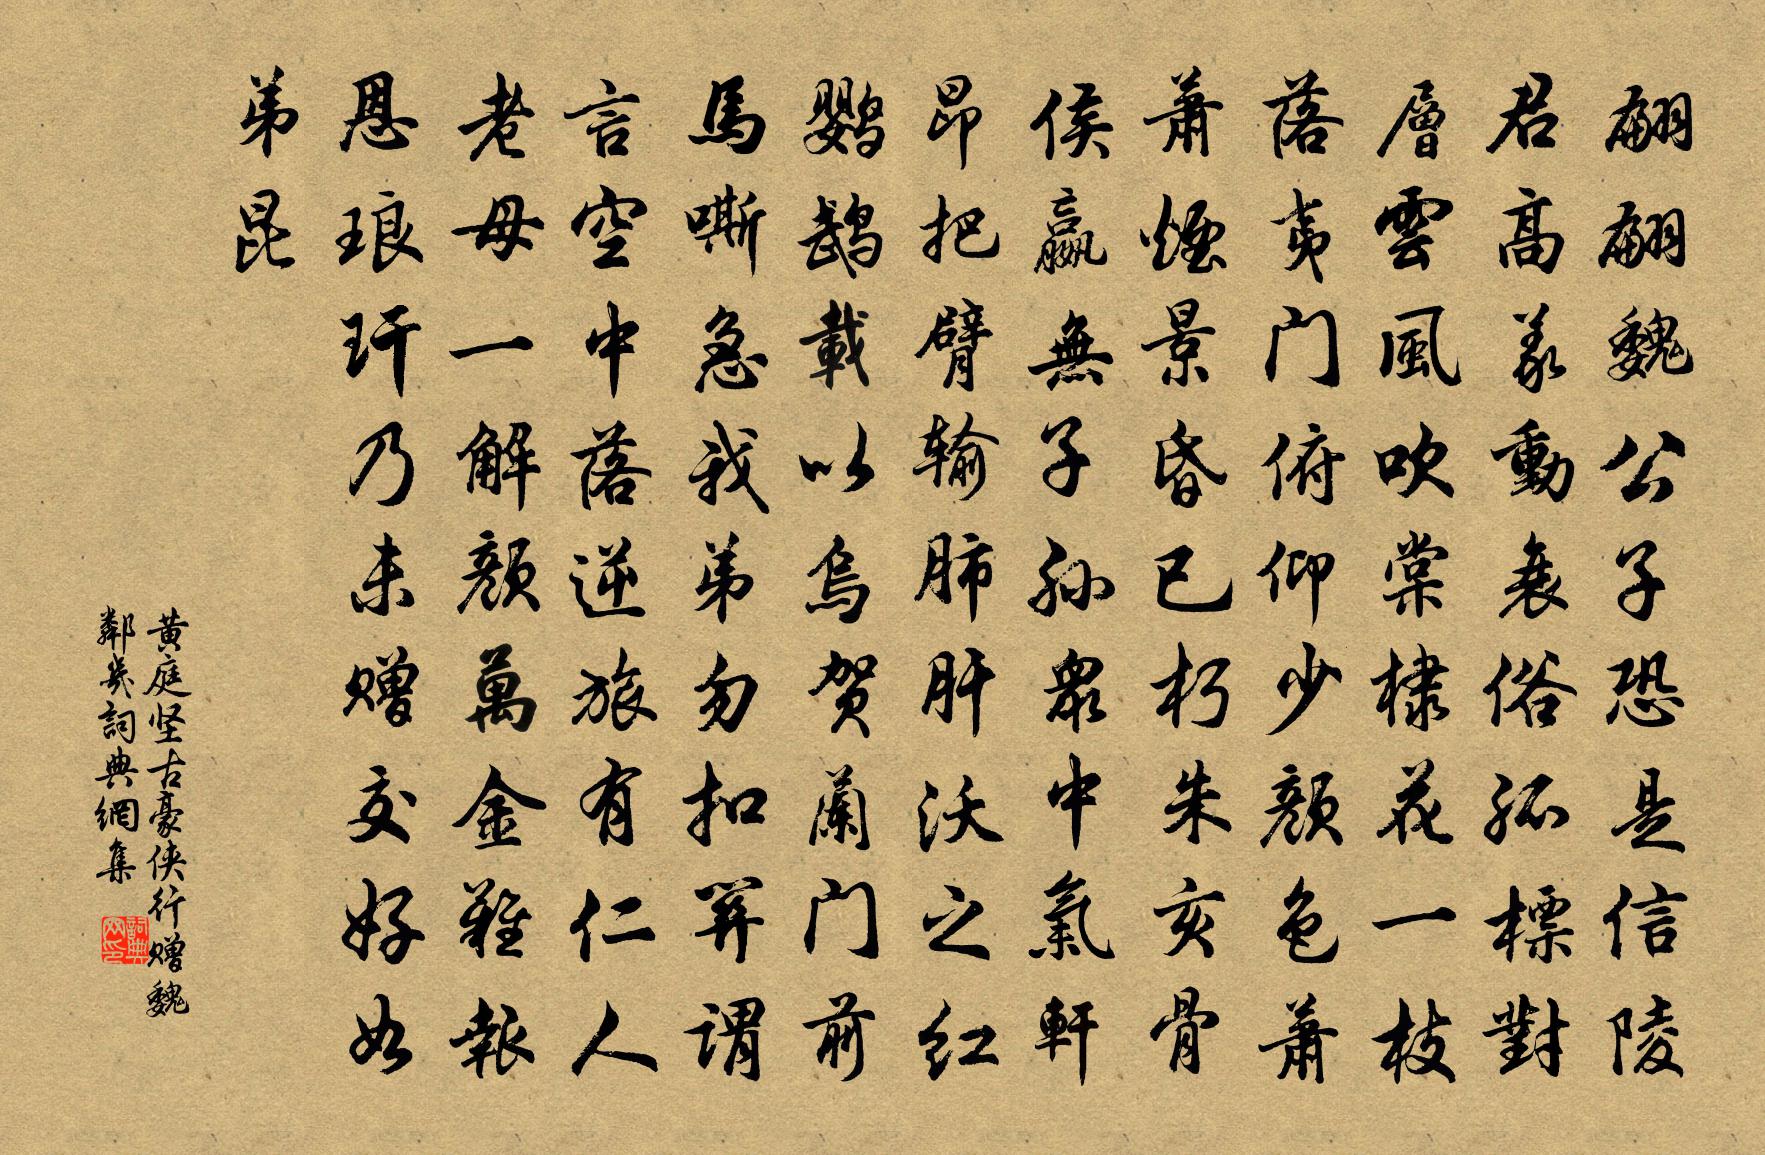 翩翩魏公子恐是信陵
君高義動衰俗孤標對
層雲風吹棠棣花一枝
落夷门俯仰少顏色蕭
蕭煙景昏已朽朱亥骨
侯嬴無子孫眾中氣軒
昂把臂输肺肝沃之红
鹦鹉載以烏贺蘭门前
馬嘶急我弟勿扣関谓
言空中落逆旅有仁人
老母一解顏萬金難報
恩琅玕乃未赠交好如
弟昆
黄庭坚古豪侠行赠魏
鄰幾詞典網集
詞典网印